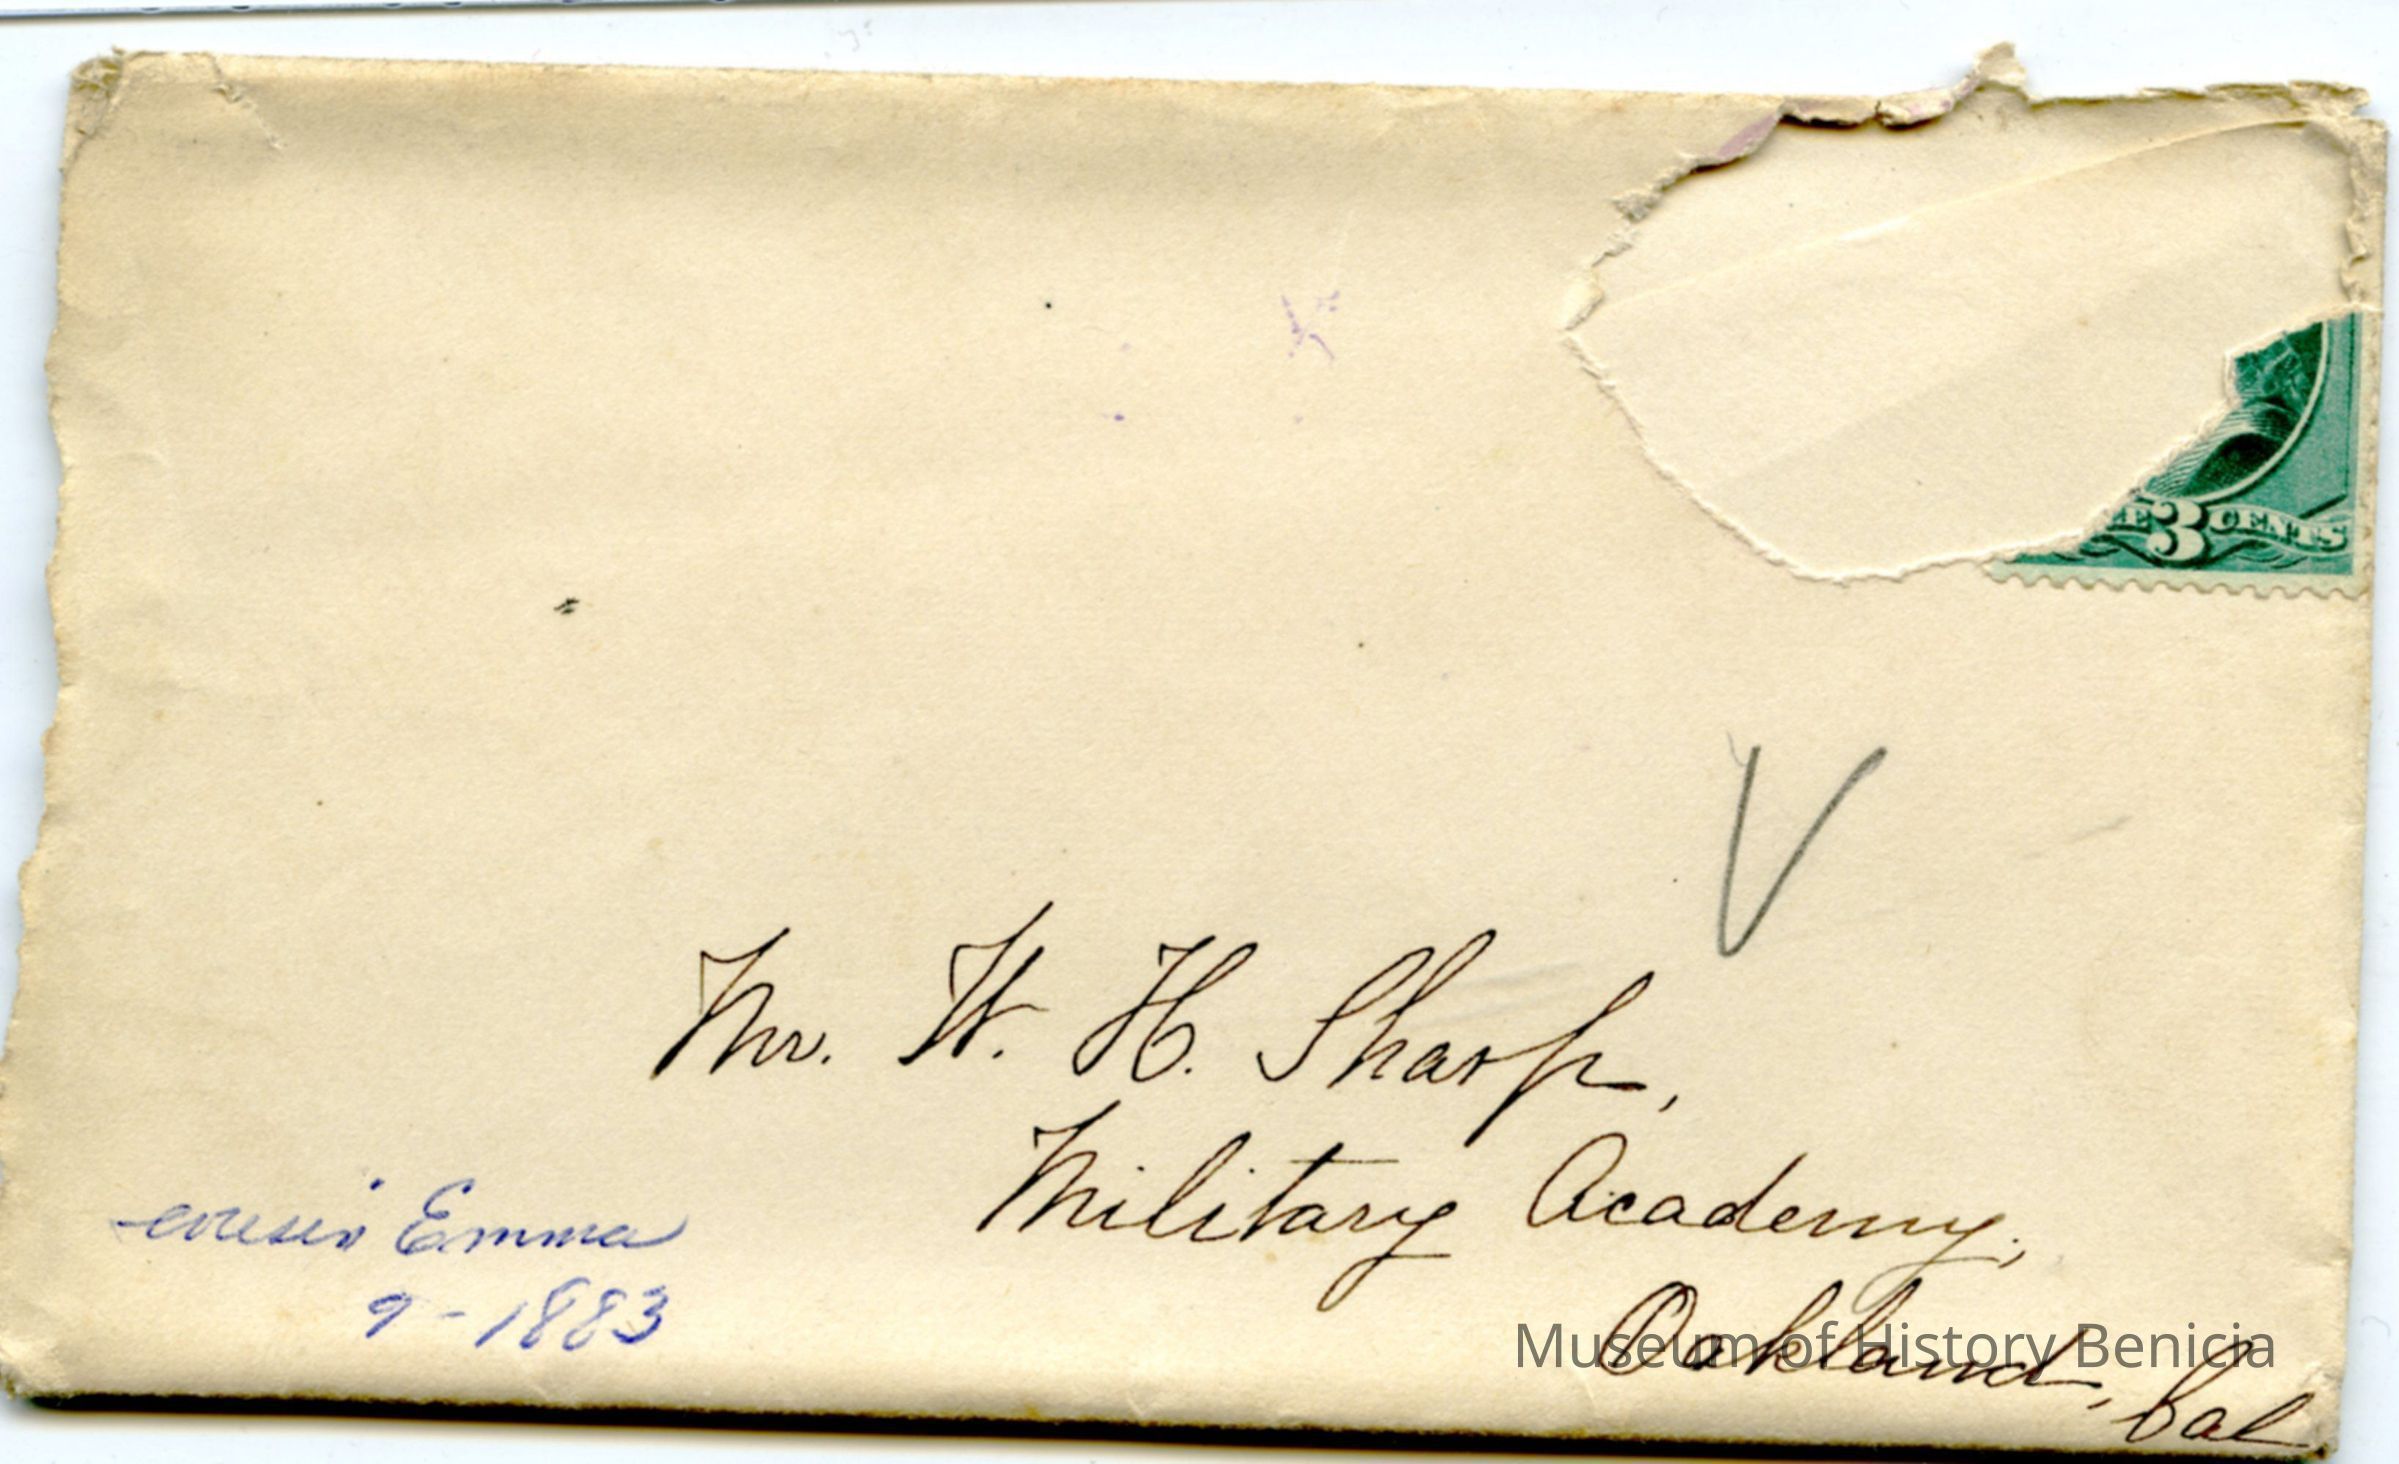 3 CENTS
V
Mr. W. H. Sharp,
Military Academy,
Oakland, Cal
cousin Emma
9-1883
Museum of History Benicia